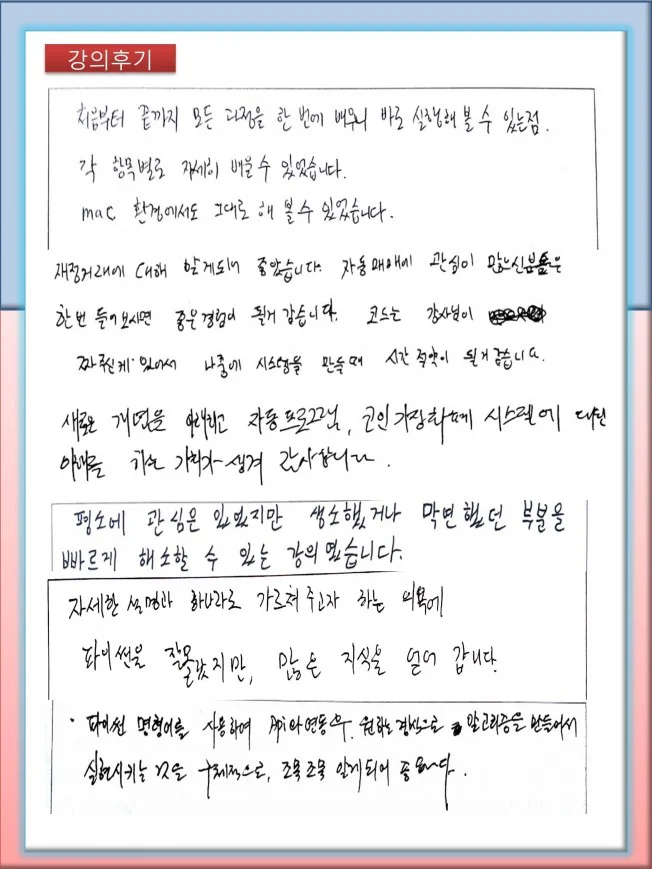 강의후기
처음부터 끝까지 모든 과정을 한 번에 배우니 바로 실행해 볼 수 있는점.
각 항목별로 자세히 배울 수 있었습니다.
mac 환경에서도 그대로 해 볼 수 있었습니다.
재정거래에 대해 알게되어 좋았습니다. 자동매매에 관심이 많으신분들은
한번 들어보시면 좋은경험이 될거 같습니다. 코드는 강사님이
짜주신게 있어서 나중에 시스템을 만들때 시간절약이 될거 같습니다.
새로운 개념을 자동프로그램, 코인가상화폐 시스템에 대한
이해를 하는 기회가 생겨 감사합니다.
평소에 관심은 있었지만 생소했거나 막연했던 부분을
빠르게 해소할 수 있는 강의였습니다.
자세한 설명과 하나라도 가르쳐주고자 하는 의욕에
파이썬을 잘 몰랐지만, 많은 지식을 얻어 갑니다.
· 파이썬 명령어를 사용하여 Api와 연동후, 원하는 결산으로 알고리즘을 만들어서
실현시키는 것을 구체적으로, 조목조목 알게되어 좋습니다.